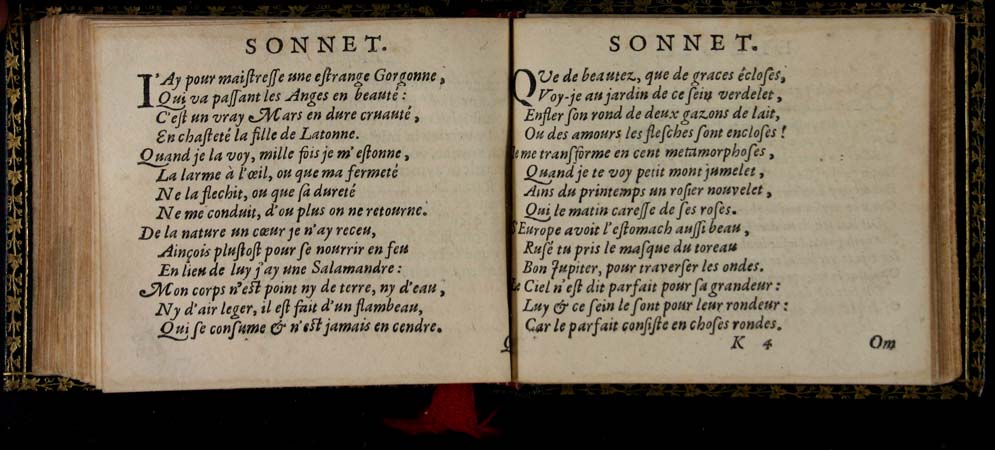 SONNET.
I'Ay pour maiſtreſſe une eſtrange Gorgonne,
Qui va paſſant les Anges en beauté:
C'eſt un vray Mars en dure cruauté,
En chaſteté la fille de Latonne.
Quand je la voy, mille fois je m'eſtonne,
La larme à l'œil, ou que ma fermeté
Ne la flechit, ou que ſa dureté
Ne me conduit, d'ou plus on ne retourne.
De la nature un cœur je n'ay receu,
Ainçois pluſtoſt pour ſe nourrir en feu
En lieu de luy j'ay une Salamandre:
Mon corps n'eſt point ny de terre, ny d'eau,
Ny d'air leger, il eſt fait d'un flambeau,
Qui ſe conſume & n'eſt jamais en cendre.
SONNET.
QVe de beautez, que de graces écloſes,
Voy-je au jardin de ce ſein verdelet,
Enfler ſon rond de deux gazons de lait,
Ou des amours les fleſches ſont encloſes!
Je me transforme en cent metamorphoſes,
Quand je te voy petit mont jumelet,
Ains du printemps un roſier nouvelet,
Qui le matin careſſe de ſes roſes.
S'Europe avoit l'eſtomach auſſi beau,
Ruſé tu pris le maſque du toreau
Bon Jupiter, pour traverſer les ondes.
Le Ciel n'eſt dit parfait pour ſa grandeur:
Luy & ce ſein le ſont pour leur rondeur:
Car le parfait conſiſte en choſes rondes.
K 4 Om